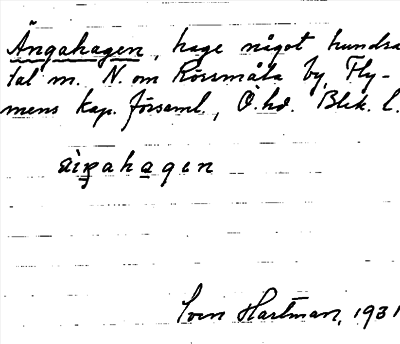 Ängahagen, hage något hundra
tal m. N. om Rössmåla by, Fly-
mens kap. församl., Ö. hd. Blek. l.
hagen
Sven Hartman, 1931